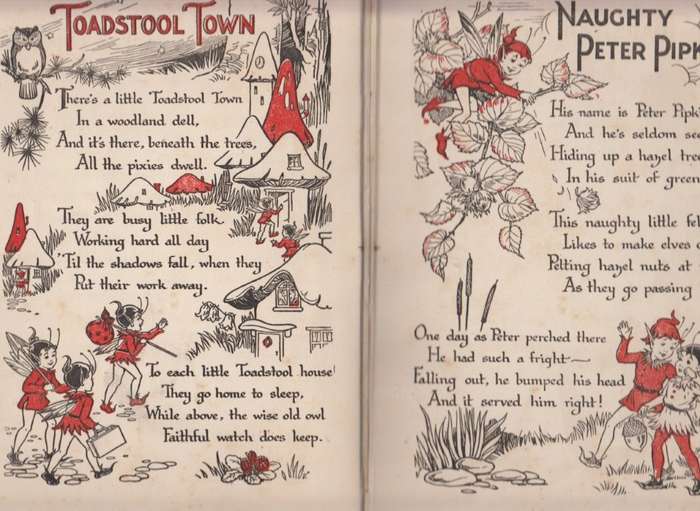 TOADSTOOL TOWN
There's a little Toadstool Town
In a woodland dell,
And it's there, beneath the trees,
All the pixies dwell.
They are busy little folk
Working hard all day
'Til the shadows fall, when they
Put their work away.
To each little Toadstool house
They go home to sleep,
While above, the wise old owl
Faithful watch does keep.
NAUGHTY
PETER
His name is Peter
And he's seldom
Hiding up a hazel
In his suit of green
This naughty little
Likes to make elves
Pelting hazel nuts at
As they go passing
One day as Peter perched there
He had such a fright—
Falling out, he bumped his head
And it served him right!